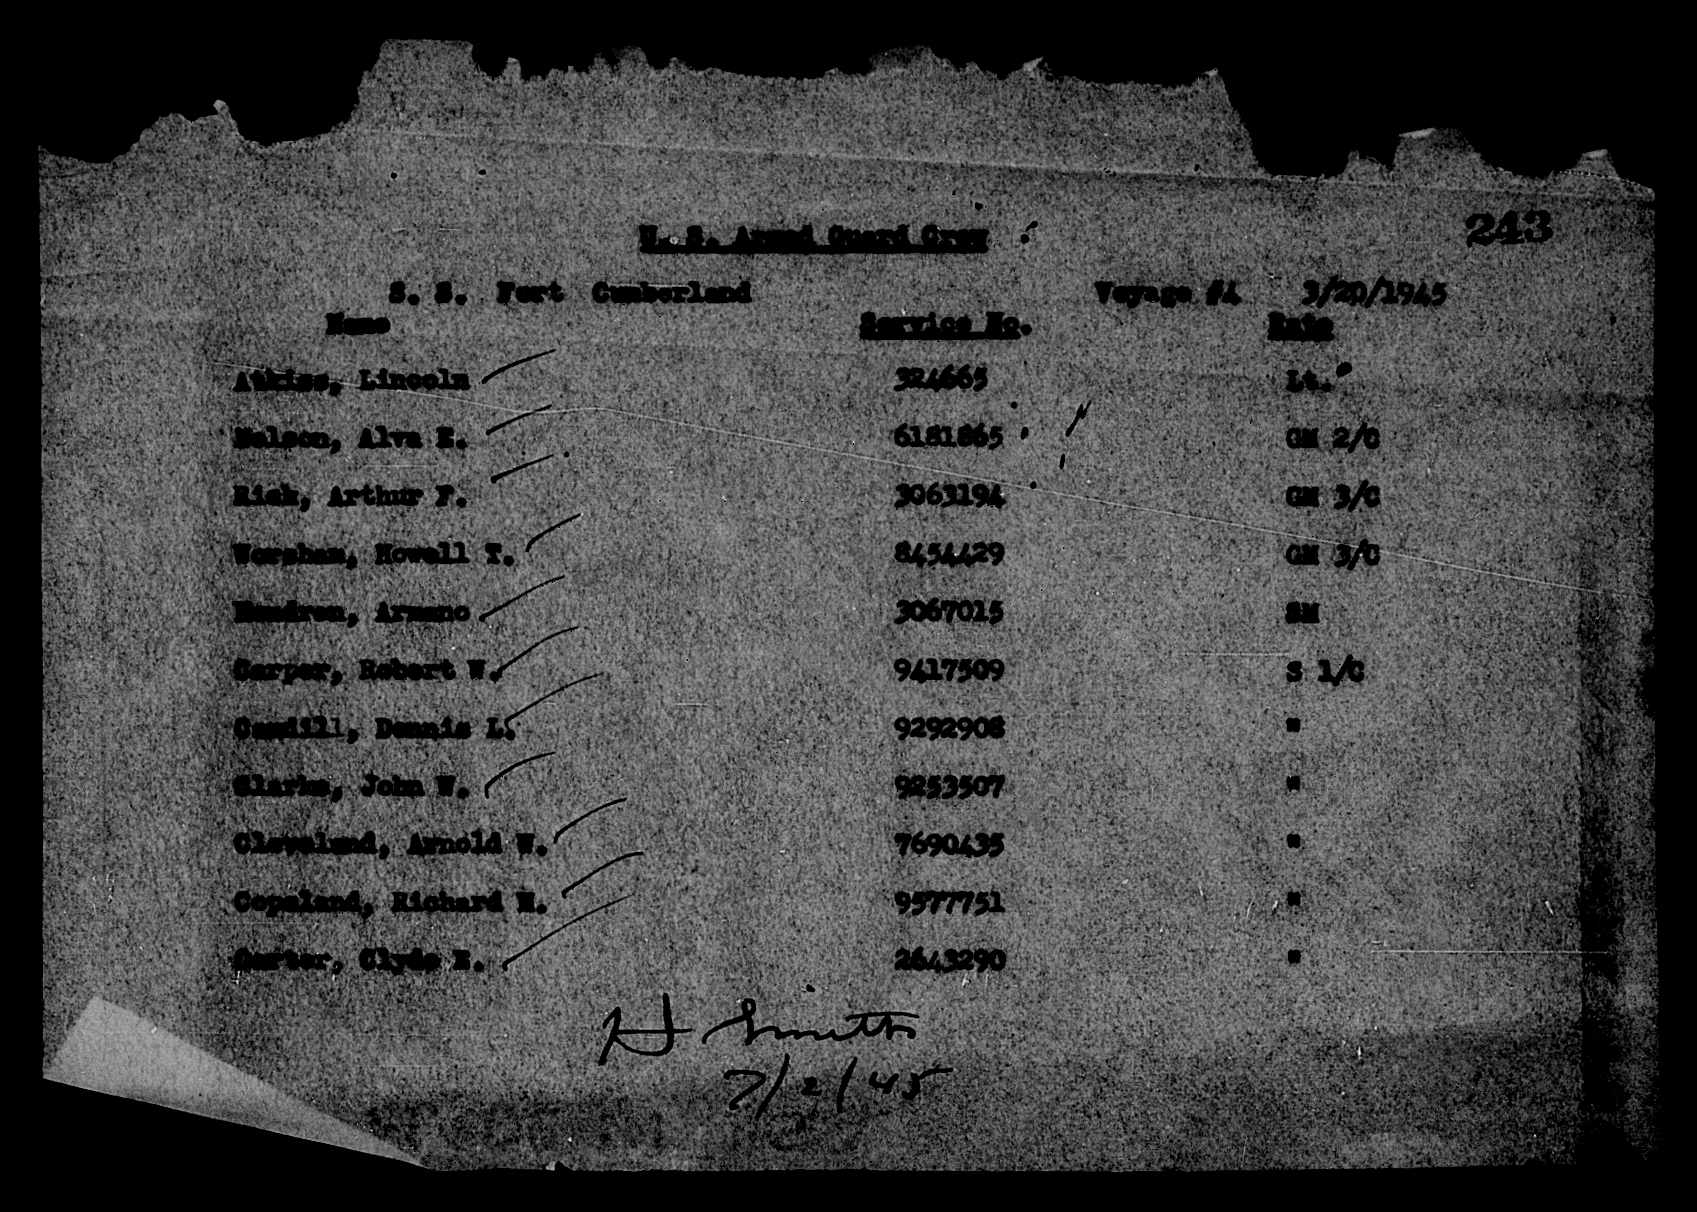 243
U. S. Armed Guard Crew
S. S. Fort Cumberland Voyage #4 3/20/1945
Name Service No. Rate
Atkiss, Lincoln 324665 Lt.
Nelson, Alva E. 6181865 GM 2/C
Rick, Arthur F. 3063194 GM 3/C
Worsham, Howell T. 8454429 GM 3/C
3067015 SM
Carper, Robert W. 9417509 S 1/C
Caudill, Dennis L. 9292908 "
Clarke, John W. 9253507 "
Cleveland, Arnold W. 7690435 "
Copeland, Richard 9577751 "
Carter, Clyde E. 2643290 "
H Smith
7/2/45